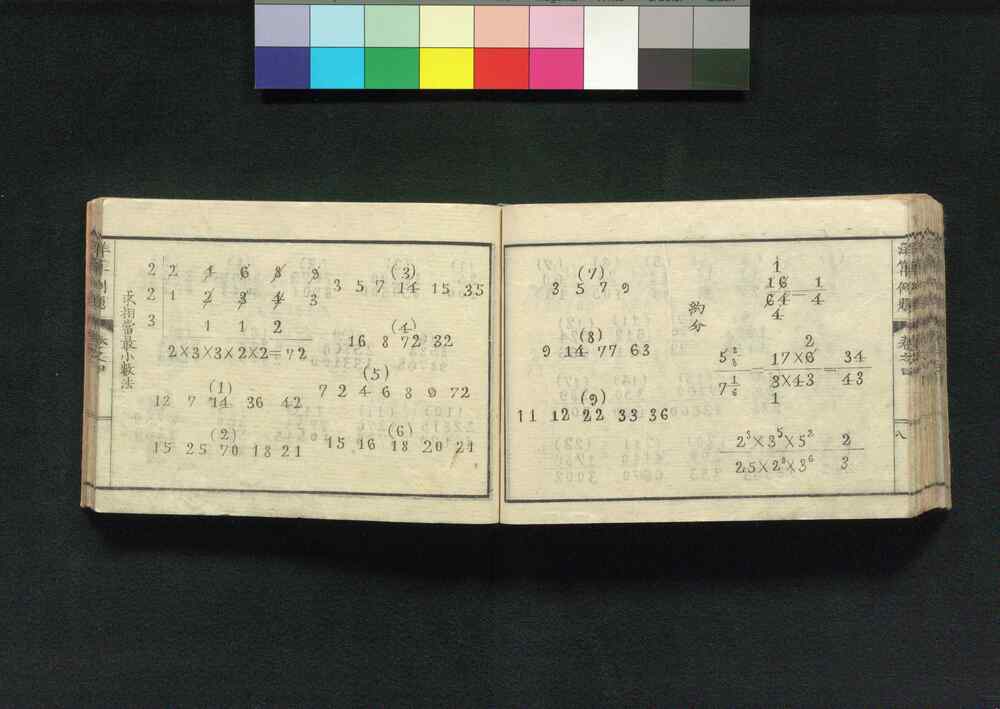 求相當最小數法
2 2 4 6 8 9
2 1 2 3 4 3
3 1 1 2
2×3×3×2×2=72
(1)
12 7 14 36 42
(2)
15 25 70 18 21
(3)
3 5 7 14 15 35
(4)
16 8 72 32
(5)
7 2 4 6 8 9 72
(6)
15 16 18 20 24
(7)
3 5 7 9
(8)
9 14 77 63
(9)
11 12 22 33 36
約分
1
16/64=1/4
4
2
5 2/3 / 7 1/6 = 17×6 / 3×43 = 34/43
1
2³×3⁵×5² / 25×2²×3⁶ = 2/3
洋算例題 卷之四
八